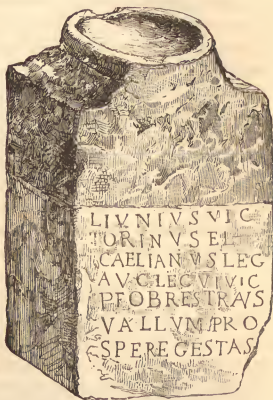 LIVNIVSVIC
TORINVSET
CAELIANVSLEG
AVGLEGVIVIC
PFOBRESTRANS
VALLVMPRO
SPEREGESTAS